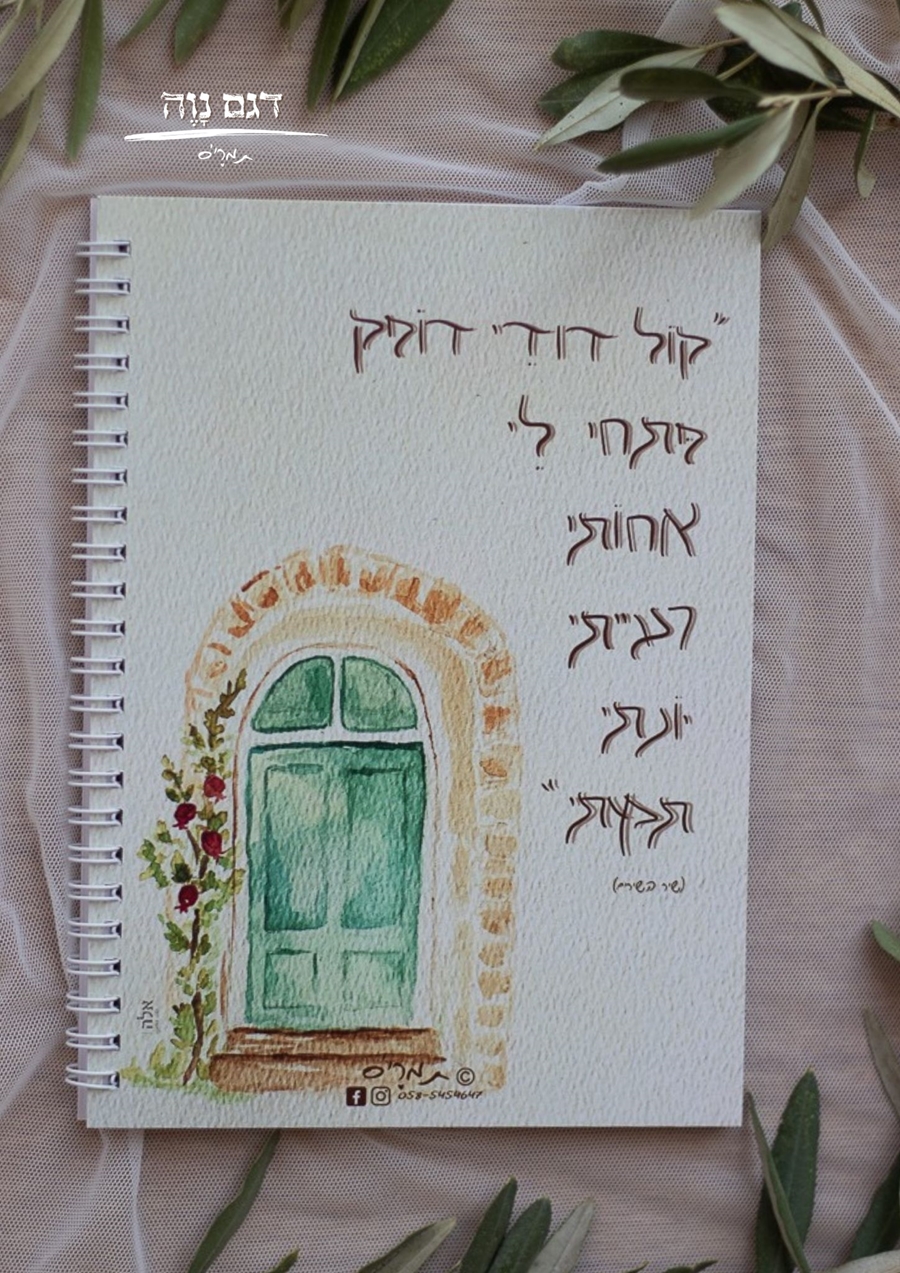 דגם נָוֶה
תמרים
"קוֹל דוֹדִי דוֹפק
פִּתחי לִי
אחוֹתי
רעייתי
יוֹנתי
תמתי"
(שיר השירים)
אלה
תמרים ©
058-5454647